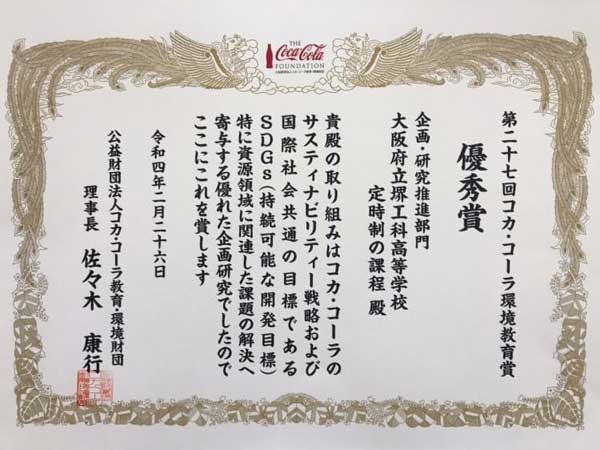 THE
Coca-Cola
FOUNDATION
第二十七回コカ・コーラ環境教育賞
優秀賞
企画・研究推進部門
大阪府立堺工科高等学校
定時制の課程 殿
貴殿の取り組みはコカ・コーラの
サスティナビリティー戦略および
国際社会共通の目標である
SDGs(持続可能な開発目標)
特に資源領域に関連した課題の解決へ
寄与する優れた企画研究でしたので
ここにこれを賞します
令和四年二月二十六日
公益財団法人コカ・コーラ教育・環境財団
理事長 佐々木 康行